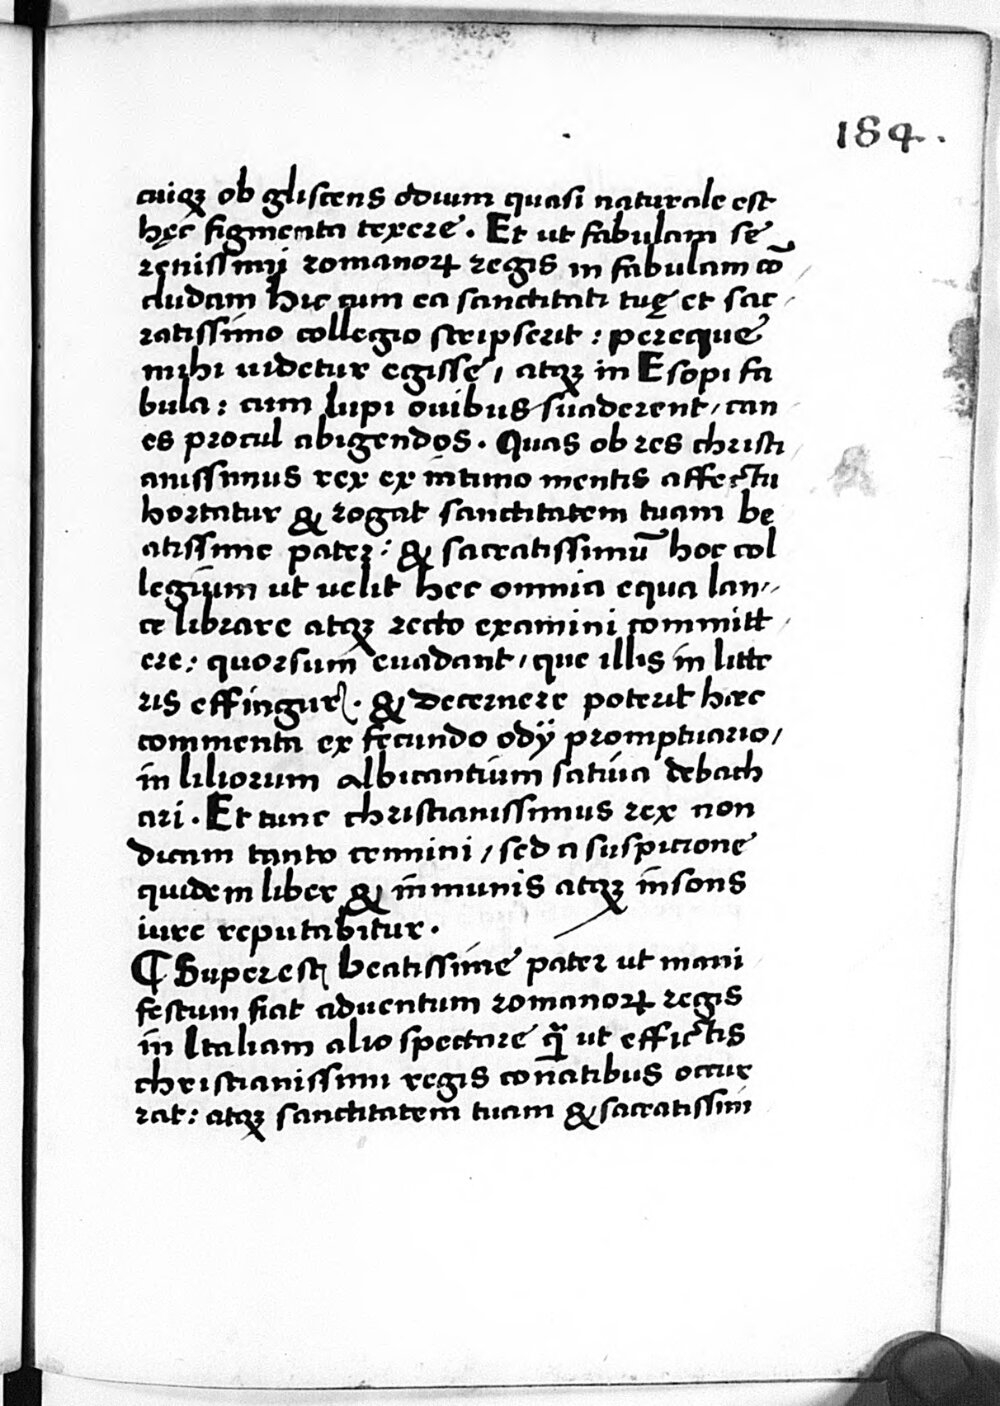 184.
cuiqꝫ ob gliscens odium quasi naturale est
hęc figmenta texere. Et ut fabulam se
renissimi romanorꝝ regis in fabulam cō
cludam hic cum ea sanctitati tuę et sac
ratissimo collegio scripserit: pereque
mihi uidetur egisse, atqꝫ in Esopi fa
bula: cum lupi ouibus suaderent, can
es procul abigendos. Quas ob res christi
anissimus rex ex intimo mentis affectu
hortatur & rogat sanctitatem tuam be
atissime pater: & sacratissimū hoc col
legium ut uelit hec omnia equa lan
ce librare atqꝫ recto examini committ
ere: quorsum euadant, que illis in litte
ris effingur̃. & decernere poterit hæc
commenta ex fecundo odÿ promptuario,
in liliorum albicantium satiua debach
ari. Et tunc christianissimus rex non
dicam tanto crimini, sed a suspicione
quidem liber & inmunis atqꝫ insons
iure reputabitur.
¶ Superest beatissime pater ut mani
festum fiat aduentum romanorꝝ regis
in Italiam alio spectare q̃ ut effictis
christianissimi regis conatibus occur
rat: atqꝫ sanctitatem tuam & sacratissimi